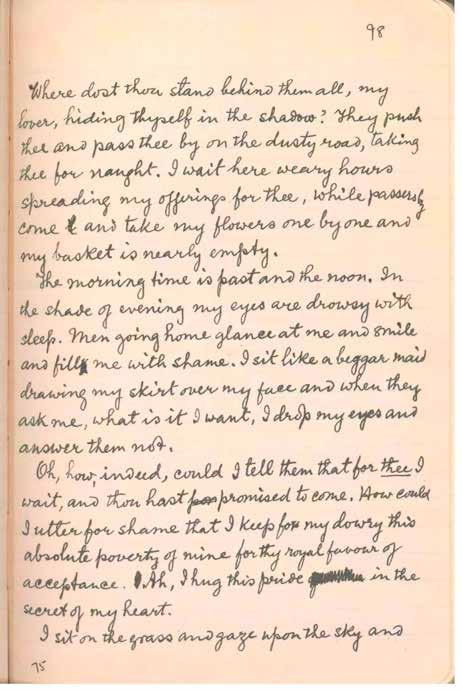 98
Where dost thou stand behind them all, my
lover, hiding thyself in the shadow? They push
thee and pass thee by on the dusty road, taking
thee for naught. I wait here weary hours
spreading my offerings for thee, while passersby
come and take my flowers one by one and
my basket is nearly empty.
The morning time is past and the noon. In
the shade of evening my eyes are drowsy with
sleep. Men going home glance at me and smile
and fill me with shame. I sit like a beggar maid
drawing my skirt over my face and when they
ask me, what is it I want, I drop my eyes and
answer them not.
Oh, how, indeed, could I tell them that for thee I
wait, and thou hast promised to come. How could
I utter for shame that I keep for my dowry this
absolute poverty of mine for thy royal favour of
acceptance. Ah, I hug this pride in the
secret of my heart.
I sit on the grass and gaze upon the sky and
75